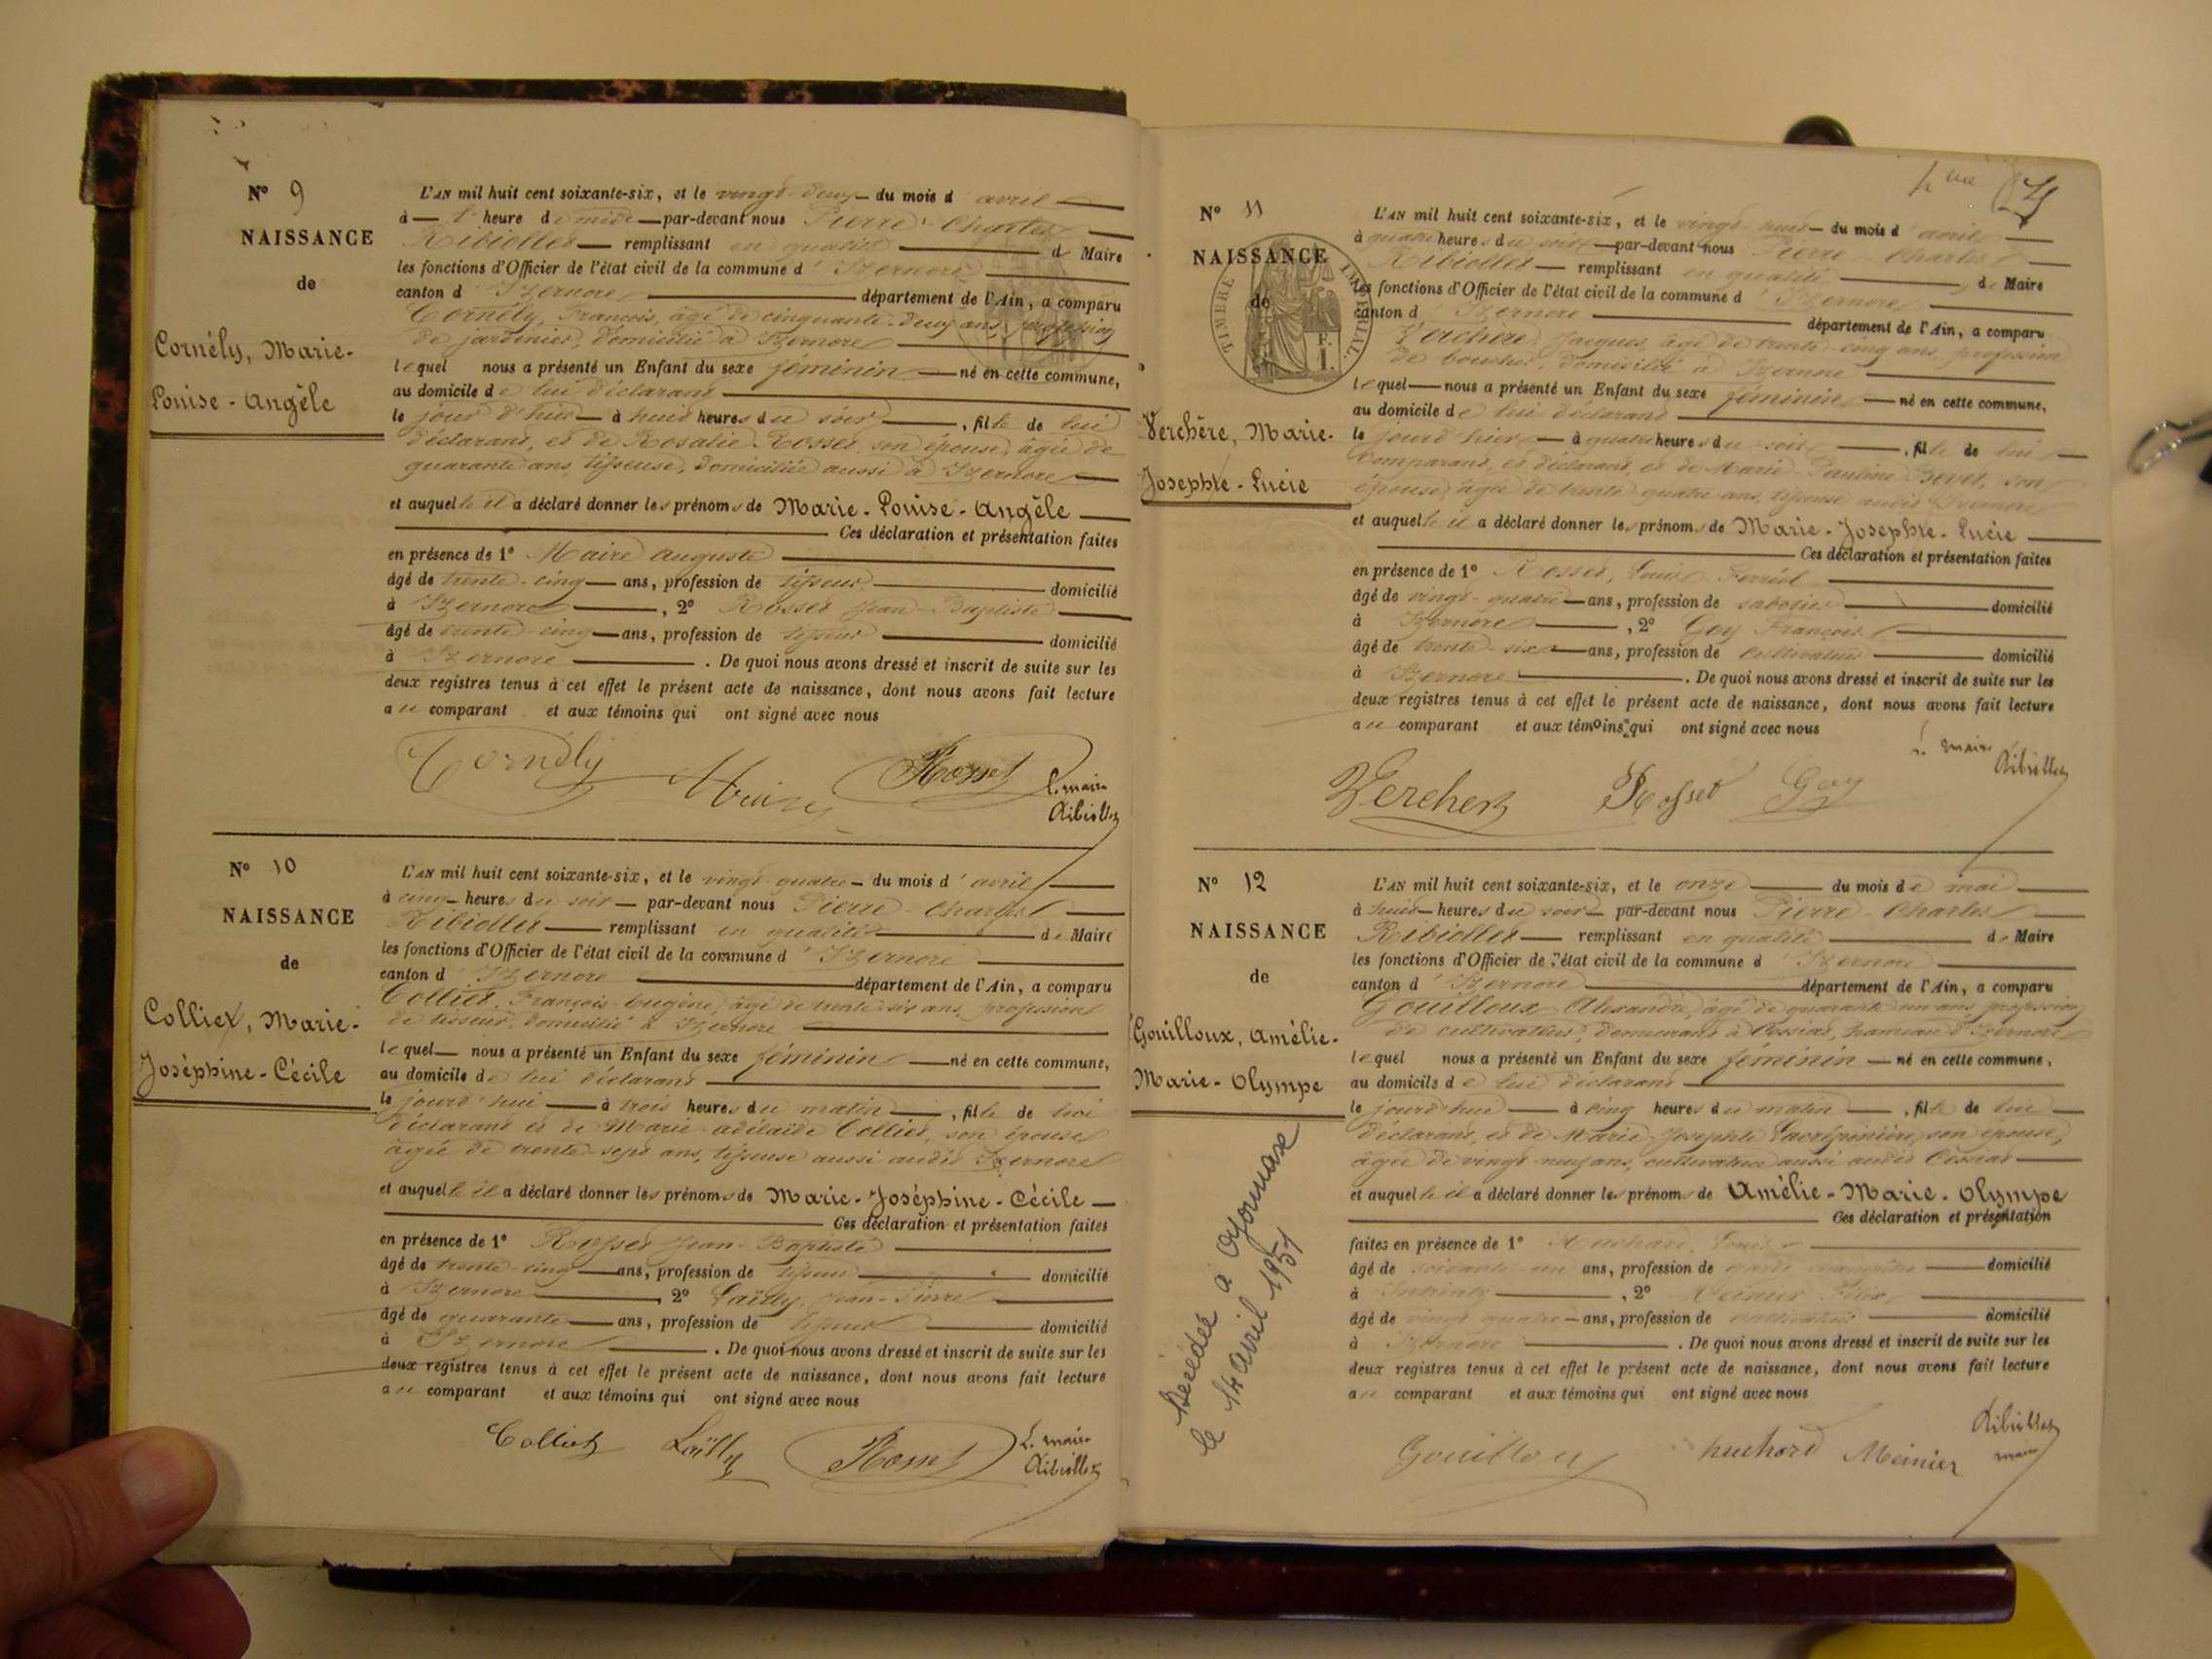 N° 9
NAISSANCE
de
Cornély, Marie-
Louise - Angèle
L'AN mil huit cent soixante-six, et le vingt-deux du mois d'avril
à l'heure de midi par-devant nous Pierre-Charles
Ribiollet remplissant en qualité de Maire
les fonctions d'Officier de l'état civil de la commune d'Izernore
canton d'Izernore département de l'Ain, a comparu
Cornély, François, âgé de cinquante-deux ans, profession
de jardinier, domicilié à Izernore
lequel nous a présenté un Enfant du sexe féminin né en cette commune,
au domicile de lui déclarant
le jour d'hier à huit heures du soir, fille de lui
déclarant, et de Rosalie Rosset, son épouse, âgée de
quarante ans, tisseuse, domiciliée aussi à Izernore
et auquelle il a déclaré donner les prénoms de Marie-Louise-Angèle
Ces déclaration et présentation faites
en présence de 1° Maire Auguste
âgé de trente-cinq ans, profession de tisseur domicilié
à Izernore, 2° Rosset Jean-Baptiste
âgé de trente-cinq ans, profession de tisseur domicilié
à Izernore. De quoi nous avons dressé et inscrit de suite sur les
deux registres tenus à cet effet le présent acte de naissance, dont nous avons fait lecture
au comparant et aux témoins qui ont signé avec nous
Cornély Maire Rosset L. maire
Ribiollet
N° 10
NAISSANCE
de
Colliex, Marie-
Joséphine-Cécile
L'AN mil huit cent soixante-six, et le vingt-quatre du mois d'avril
à cinq heures du soir par-devant nous Pierre-Charles
Ribiollet remplissant en qualité de Maire
les fonctions d'Officier de l'état civil de la commune d'Izernore
canton d'Izernore département de l'Ain, a comparu
Colliet, François-Eugène, âgé de trente-six ans, profession
de tisseur, domicilié à Izernore
lequel nous a présenté un Enfant du sexe féminin né en cette commune,
au domicile de lui déclarant
le jourd'hui à trois heures du matin, fille de lui
déclarant et de Marie-Adélaïde Colliet, son épouse
âgée de trente-sept ans, tisseuse aussi audit Izernore
et auquelle il a déclaré donner les prénoms de Marie-Joséphine-Cécile
Ces déclaration et présentation faites
en présence de 1° Rosset Jean-Baptiste
âgé de trente-cinq ans, profession de tisseur domicilié
à Izernore, 2° Laïlly, Jean-Pierre
âgé de quarante ans, profession de tisseur domicilié
à Izernore. De quoi nous avons dressé et inscrit de suite sur les
deux registres tenus à cet effet le présent acte de naissance, dont nous avons fait lecture
au comparant et aux témoins qui ont signé avec nous
Colliet Laïlly Rosset L. maire
Ribiollet
N° 11
NAISSANCE
de
TIMBRE IMPÉRIAL
Verchère, Marie-
Josephte-Lucie
L'AN mil huit cent soixante-six, et le vingt-huit du mois d'avril
à quatre heures du soir par-devant nous Pierre-Charles
Ribiollet remplissant en qualité de Maire
les fonctions d'Officier de l'état civil de la commune d'Izernore
canton d'Izernore département de l'Ain, a comparu
Verchère, Jacques, âgé de trente-cinq ans, profession
de boucher, domicilié à Izernore
lequel nous a présenté un Enfant du sexe féminin né en cette commune,
au domicile de lui déclarant
le jour d'hier à quatre heures du soir, fille de lui
comparant, et déclarant, et de Marie-Pauline son
épouse, âgée de trente-quatre ans, tisseuse audit Izernore
et auquelle il a déclaré donner les prénoms de Marie-Josephte-Lucie
Ces déclaration et présentation faites
en présence de 1° Rosset, Louis Ferréol
âgé de vingt-quatre ans, profession de sabotier domicilié
à Izernore, 2° Goy François
âgé de trente-six ans, profession de cultivateur domicilié
à Izernore. De quoi nous avons dressé et inscrit de suite sur les
deux registres tenus à cet effet le présent acte de naissance, dont nous avons fait lecture
au comparant et aux témoins qui ont signé avec nous
L. maire
Ribiollet
Rosset Goy
N° 12
NAISSANCE
de
Gouilloux, Amélie-
Marie-Olympe
Décédée à Oyonnax
le 14 avril 1951
L'AN mil huit cent soixante-six, et le onze du mois de mai
à huit heures du soir par-devant nous Pierre-Charles
Ribiollet remplissant en qualité de Maire
les fonctions d'Officier de l'état civil de la commune d'Izernore
canton d'Izernore département de l'Ain, a comparu
Gouilloux Alexandre, âgé de quarante-un ans, profession
de cultivateur, demeurant à Cessiat, hameau d'Izernore
lequel nous a présenté un Enfant du sexe féminin né en cette commune,
au domicile de lui déclarant
le jourd'hui à cinq heures du matin, fille de lui
déclarant, et de Marie-Josephte son épouse,
âgée de vingt-neuf ans, cultivatrice aussi audit Cessiat
et auquelle il a déclaré donner les prénoms de Amélie-Marie-Olympe
Ces déclaration et présentation
faites en présence de 1° Huchard, Louis
âgé de soixante-un ans, profession de garde champêtre domicilié
à, 2° Meinier Félix
âgé de vingt-quatre ans, profession de cultivateur domicilié
à Izernore. De quoi nous avons dressé et inscrit de suite sur les
deux registres tenus à cet effet le présent acte de naissance, dont nous avons fait lecture
au comparant et aux témoins qui ont signé avec nous
Gouilloux huchard Meinier Ribiollet
maire